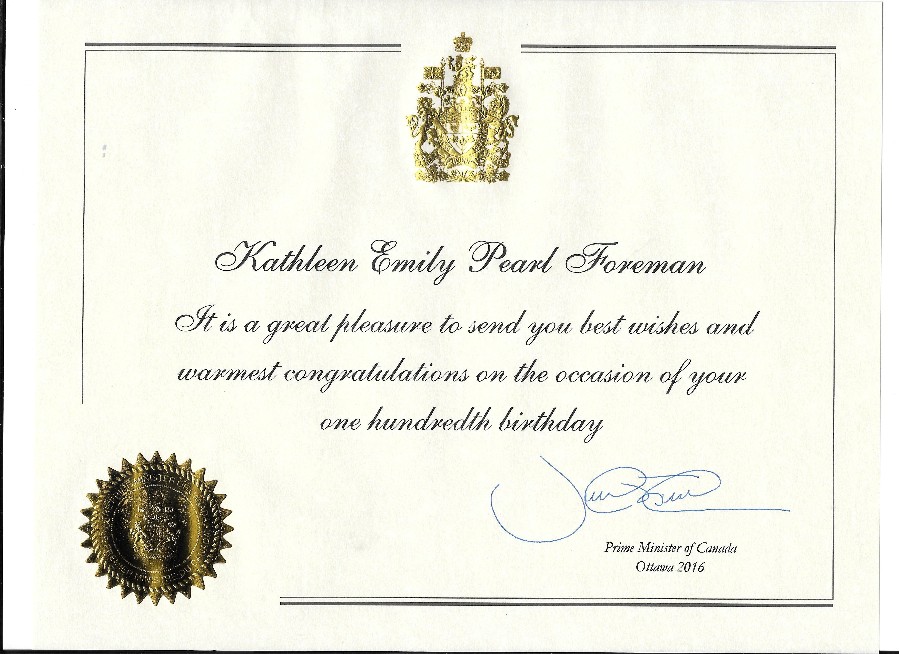 Kathleen Emily Pearl Foreman
It is a great pleasure to send you best wishes and
warmest congratulations on the occasion of your
one hundredth birthday
Prime Minister of Canada
Ottawa 2016